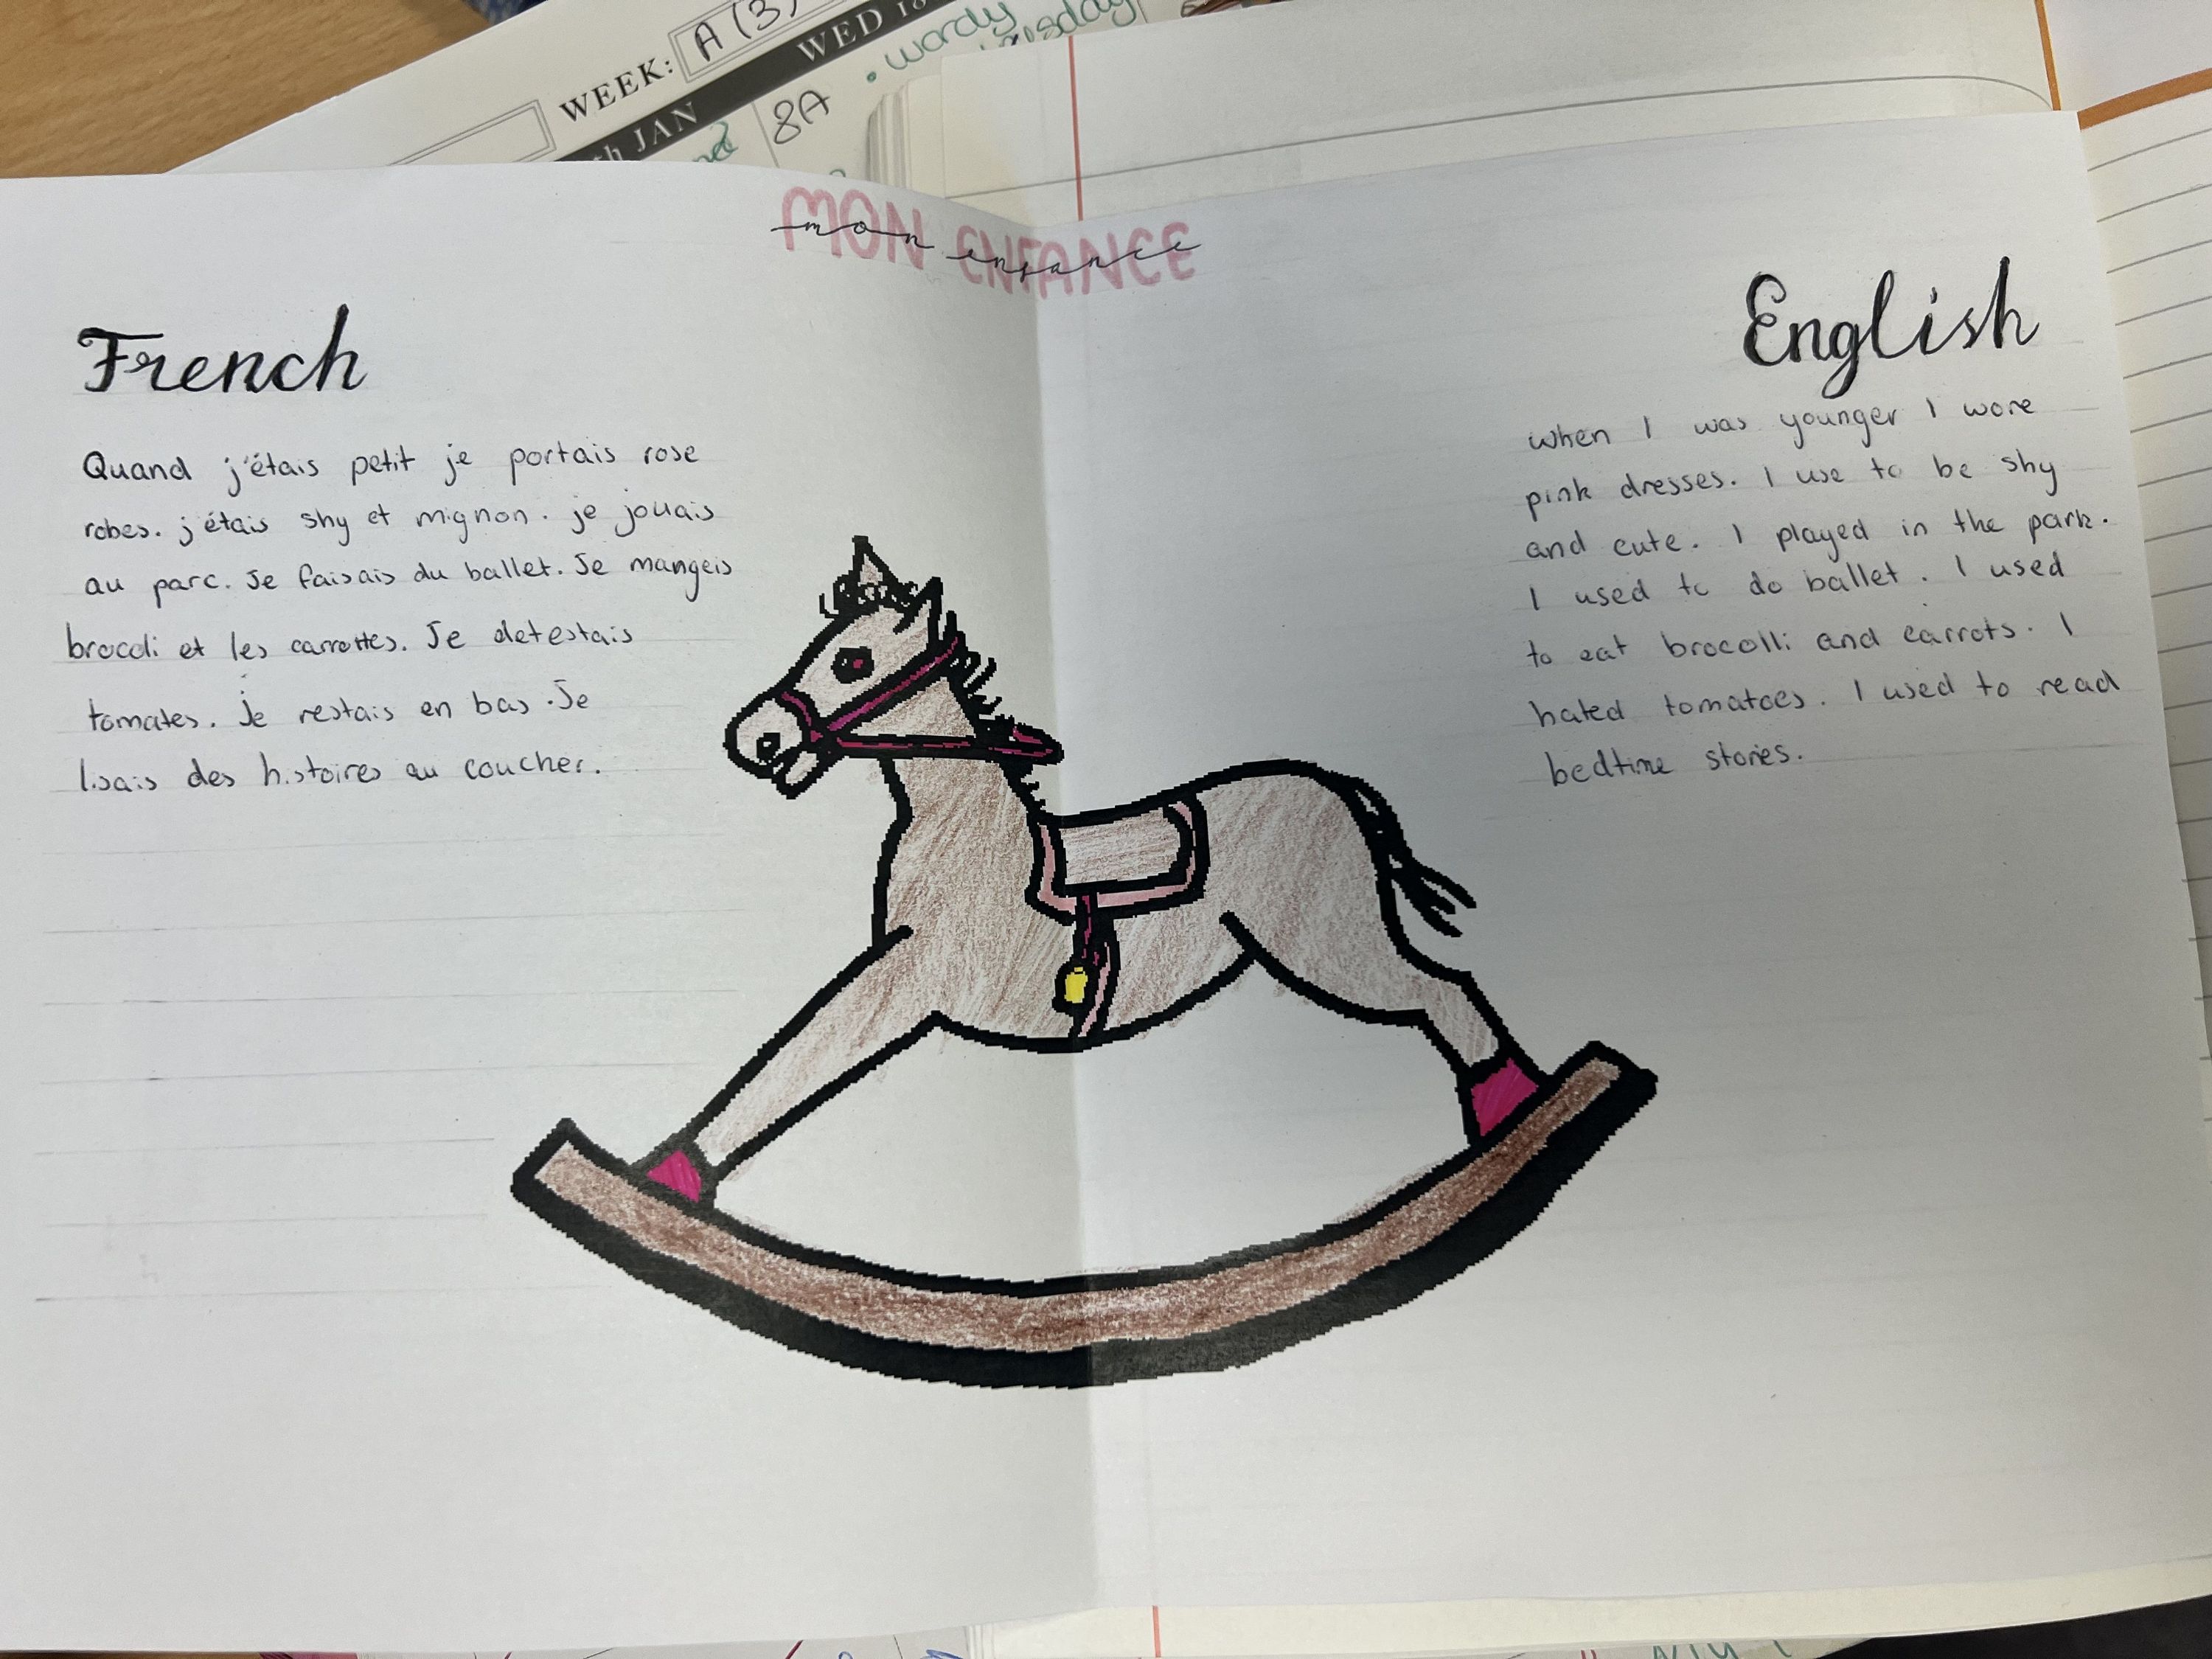 WEEK: A (3)
WED 18
th JAN
8A
• wordy
MON ENFANCE
mon enfance
French
Quand j'étais petit je portais rose
robes. j'étais shy et mignon. je jouais
au parc. Je faisais du ballet. Je mangeis
brocoli et les carrottes. Je detestais
tomates. je restais en bas. Je
lisais des histoires au coucher.
English
when I was younger I wore
pink dresses. I use to be shy
and cute. I played in the park.
I used to do ballet. I used
to eat brocolli and carrots. I
hated tomatoes. I used to read
bedtime stories.